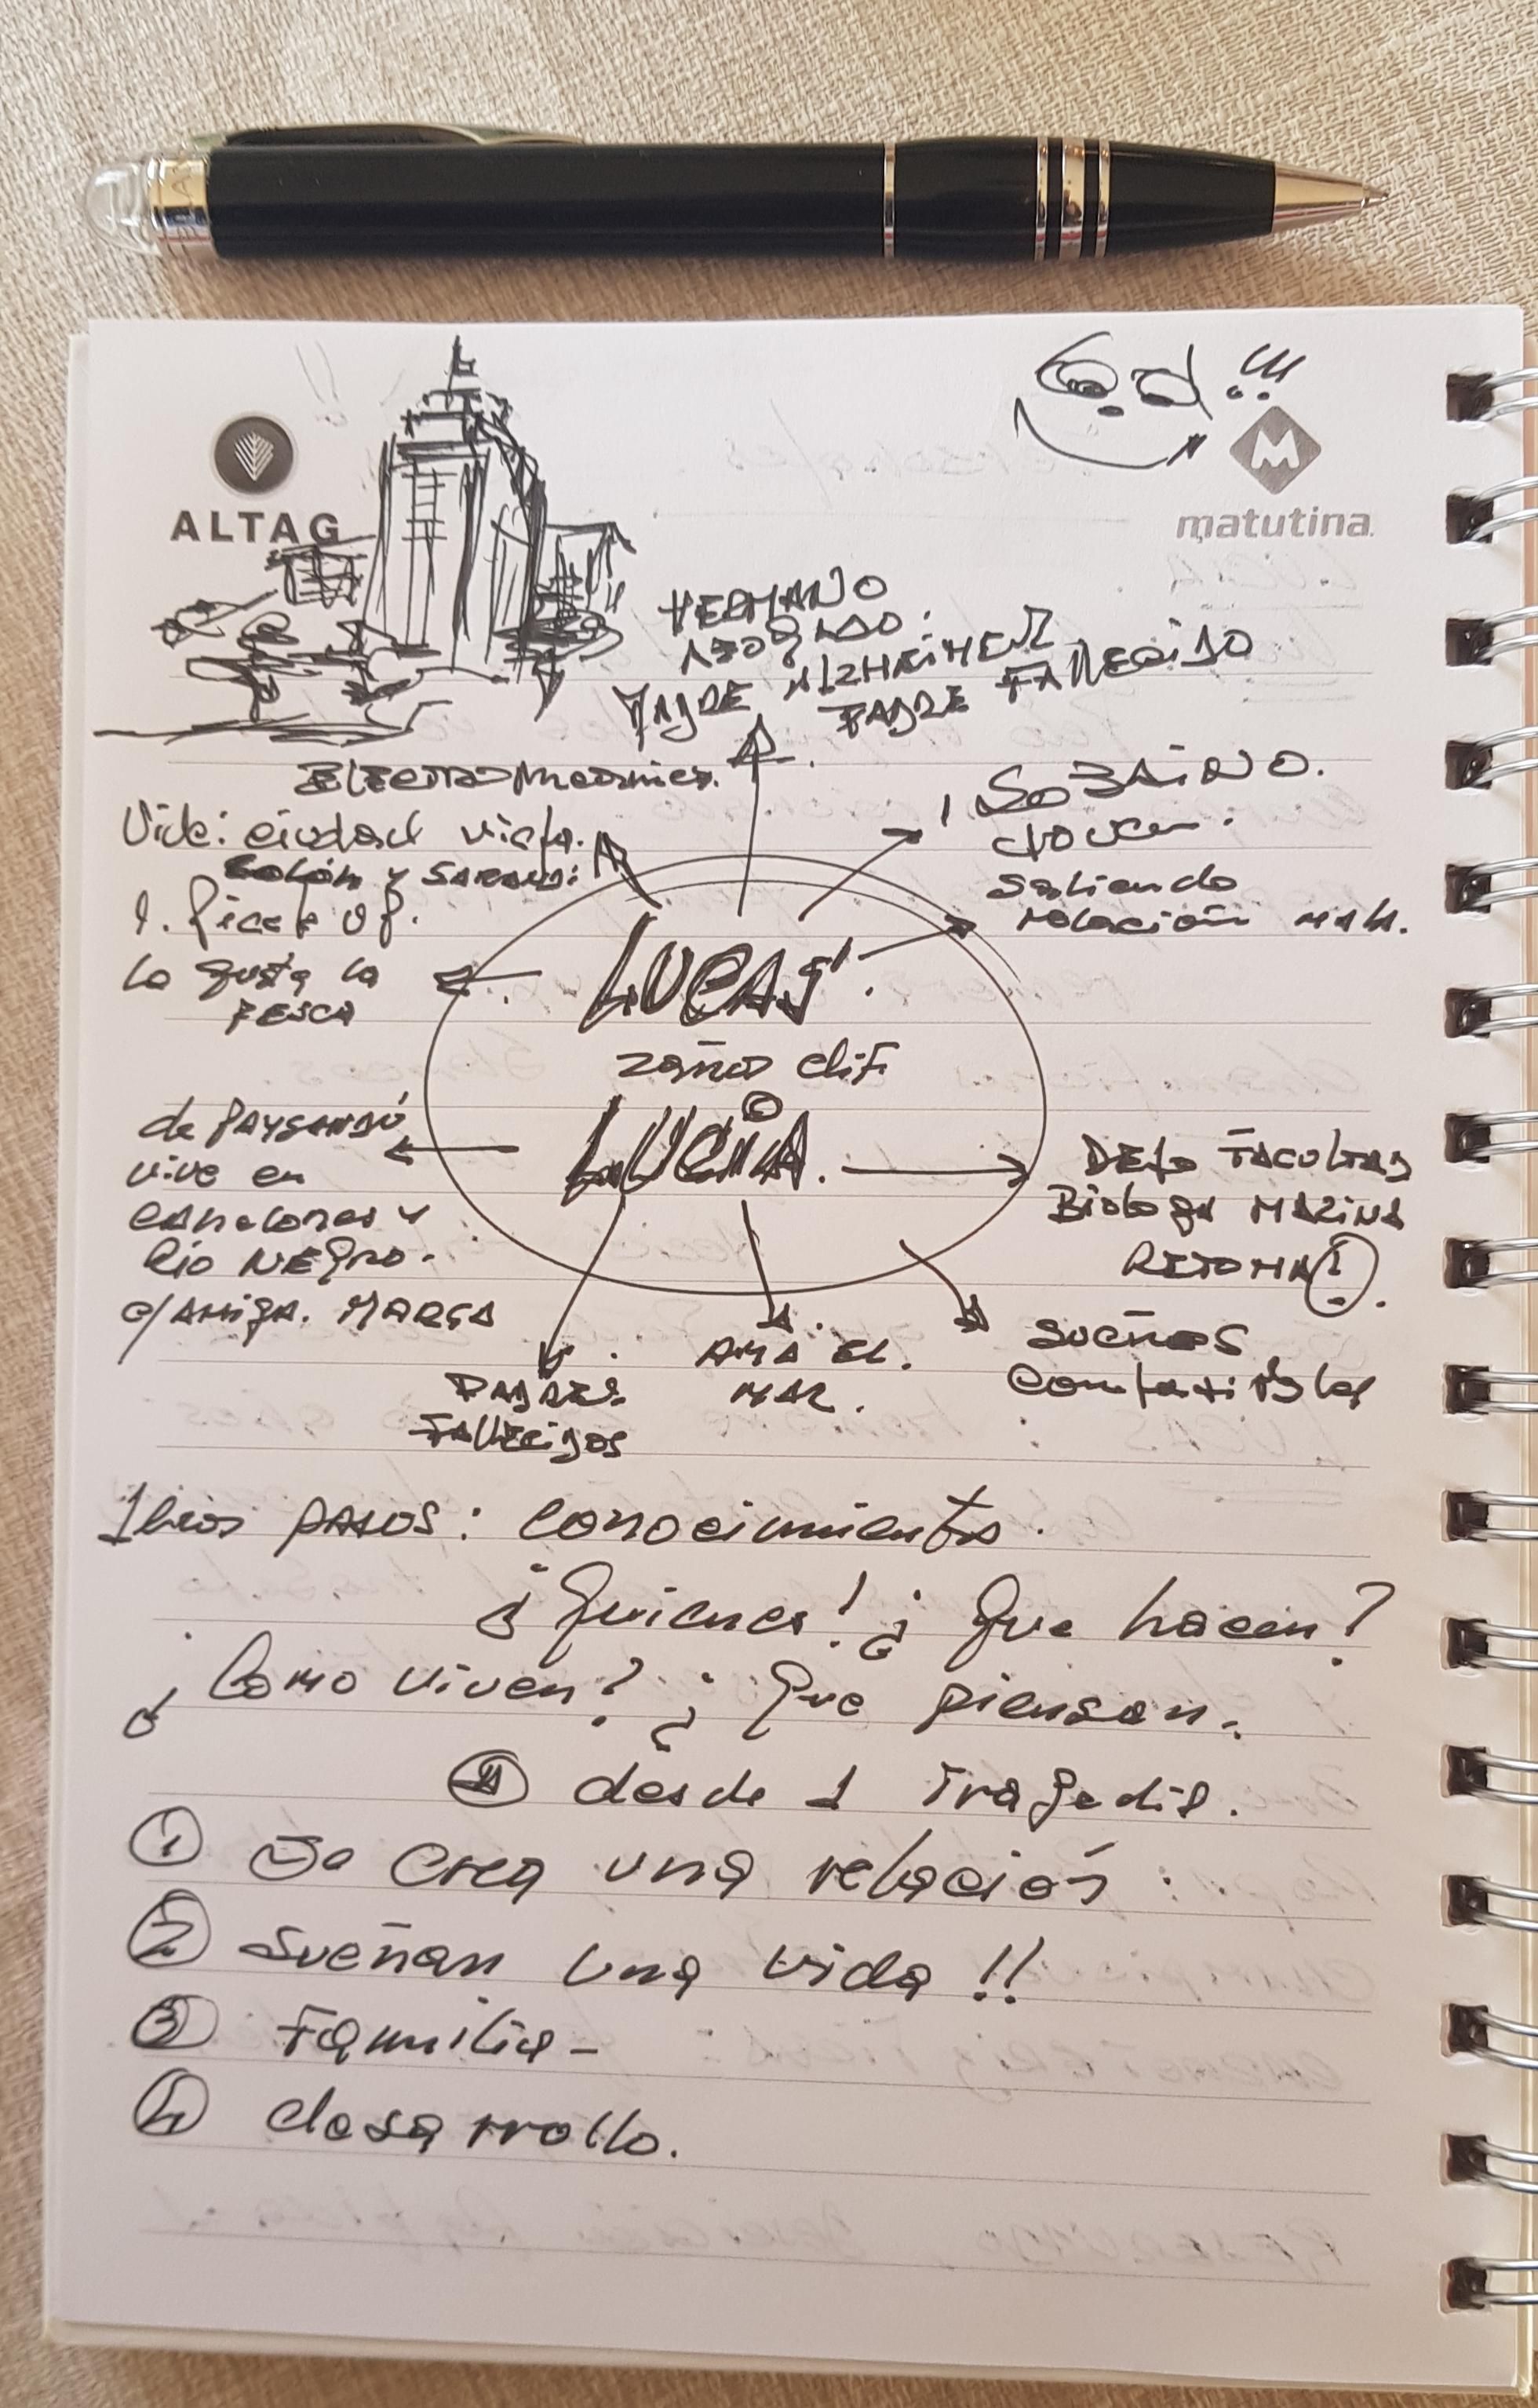 ALTAG
matutina
HERMANO
ABOGADO.
MADRE ALZHEIMER
PADRE FALLECIDO
ELECTROMECANICO.
Vive: ciudad vieja.
Colón y SARANDI
1 SOBRINO.
JOVEN.
saliendo
relación mala.
le gusta la
PESCA
LUCAS
LUCIA.
de PAYSANDÚ
vive en
CANelones y
Río NEGRO.
c/AMIGA. MARGA
DEJO FACULTAD
Biologa MARINA
RETOMA!
SUEÑOS
compartibles
AMA EL
MAR.
PADRES
FALLECIDOS
1eros PASOS: conocimiento.
¿Quienes! ¿Que hacen?
¿Como viven? ¿Que piensan.
desde 1 tragedia.
① Se crea una relación.
② Sueñan una vida!!
③ Familia-
④ desarrollo.